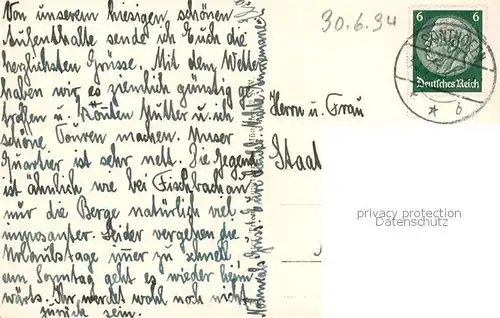 Von unserem hiesigen, schönen
Aufenthalte sende ich Euch die
herzlichsten Grüsse. Mit dem Wetter
haben wir es ziemlich günstig ge
troffen u. könten Mutter u. ich
schöne Touren machen. Unser
Quartier ist sehr nett. Die Gegend
ist ähnlich wie bei Fischbachau
nur die Berge natürlich viel
imposanter. Leider vergehen die
Urlaubstage imer zu schnell
am Sonntag geht es wieder heim
wärts. Ihr werdet wohl noch nicht
zurück sein.
Nochmals Gruss Eure
30.6.34
6 6
Deutsches Reich
SONTHOFEN
* * b
Herrn u. Frau
Staat
privacy protection
Datenschutz